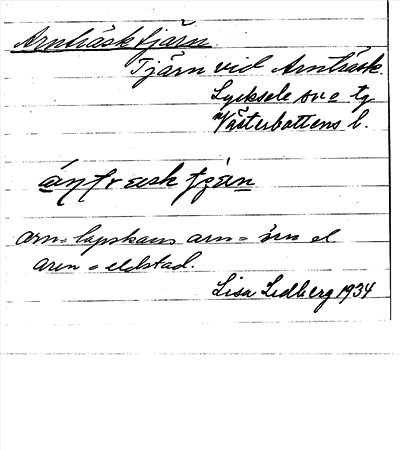 Arnträsktjärn
Tjärn vid Arnträsk.
Lycksele sn o tg
Västerbottens l.
arn = lapskans arn = el
aren = eldstad.
Lisa Lidberg 1934